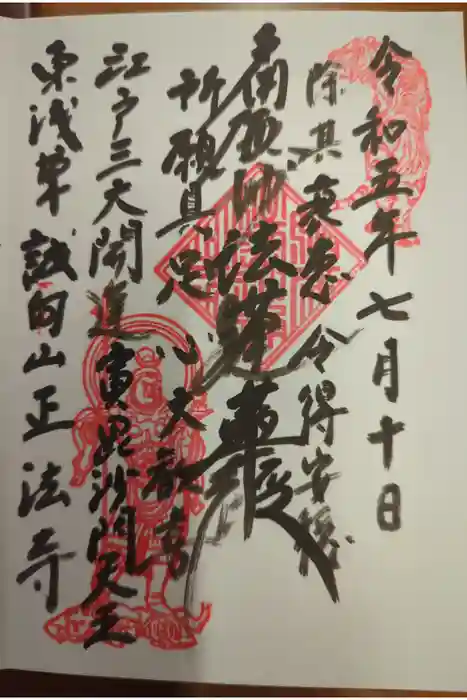 令和五年七月十日
除其衰患 令得安穏
南無妙法蓮華経
所願具足 心大歓喜
江戸三大開運富毘沙門天王
東浅草 誠向山正法寺